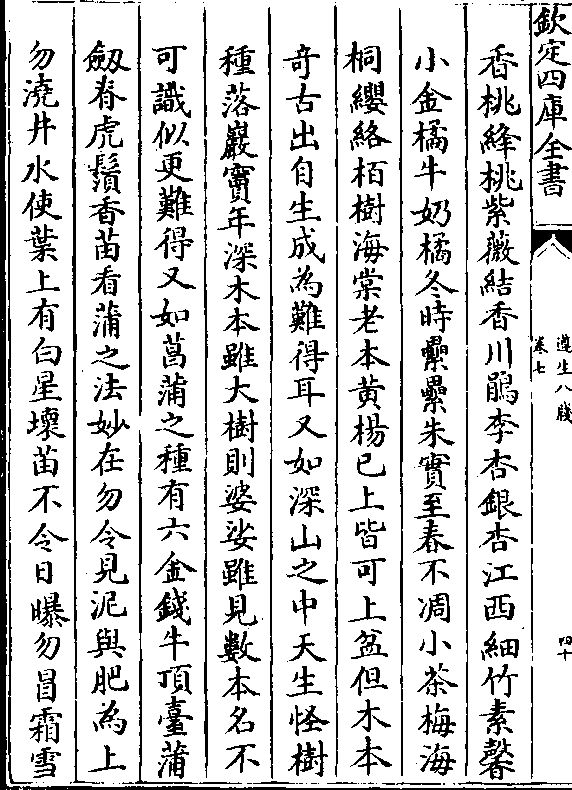 欽定四庫全書
遵生八牋
卷七
四十
香桃絳桃紫薇結香川鵑李杏銀杏江西細竹素馨
小金橘牛奶橘冬時纍纍朱實至春不凋小茶梅海
桐纓絡栢樹海棠老本黄楊已上皆可上盆但木本
竒古出自生成為難得耳又如深山之中天生怪樹
種落巖竇年深木本雖大樹則婆娑雖見數本名不
可識似更難得又如菖蒲之種有六金錢牛頂臺蒲
劔脊虎鬚香苗看蒲之法妙在勿令見泥與肥為上
勿澆井水使葉上有白星壞苗不令日曝勿冒霜雪